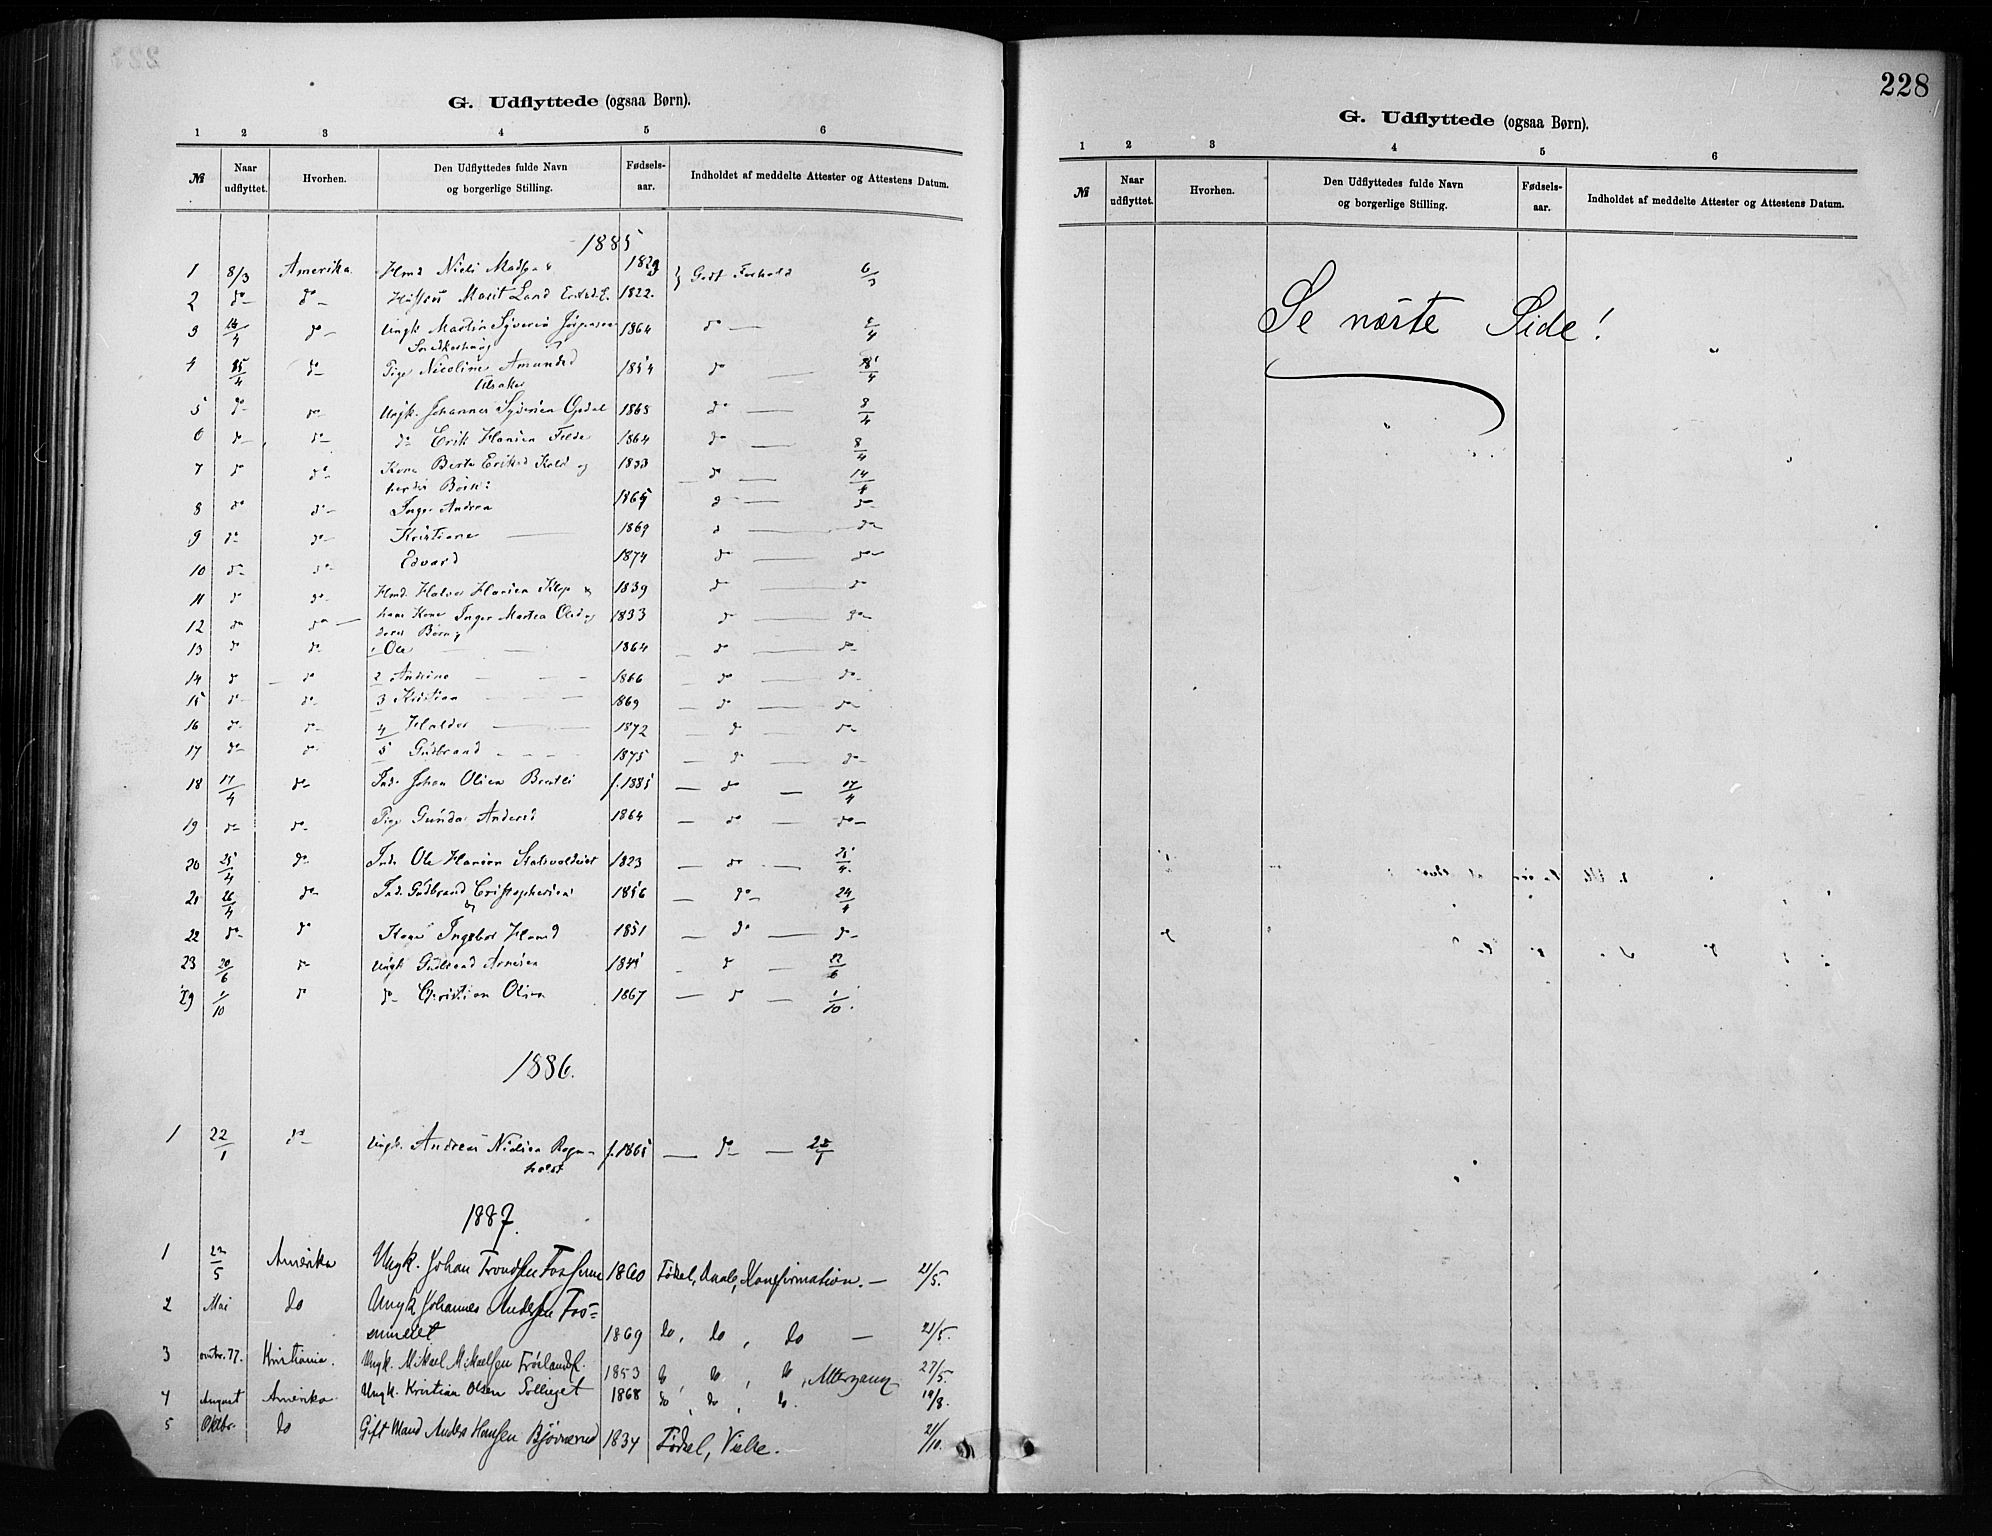 G. Udflyttede (ogsaa Børn).
1 2 3 4 5 6
№ Naar udflyttet. Hvorhen. Den Udflyttedes fulde Navn og borgerlige Stilling. Fødsels-aar. Indholdet af meddelte Attester og Attestens Datum.
1885
1 8/3 Amerika Niels 1829 Godt Forhold 6/3
2 do do Marit 1822.
3 /4 do Ungk. Martin Syversen Jørgensen 1864 do /4
4 25/4 do Pige Nicoline Amundsd 1854 do /4
5 do do Ungk. Johannes Syversen Opdal 1865 do 8/4
6 do do do Erik Hansen 1864 do 8/4
7 do do Kone Berte Eriksd og 1833 do 14/4
8 do do Inger Andrea 1865 do do
9 do do Kristiane 1869 do do
10 do do Edvard 1874 do do
11 do do Hmd. Halvor Hansen 1839 do do
12 do do hans Kone Inger Martea Olsd og 1833 do do
deres Børn:
13 do do 1 Ole 1864 do do
14 do do 2 1866 do do
15 do do 3 Kristian 1869 do do
16 do do 4 Haldor 1872 do do
17 do do 5 Gudbrand 1875 do do
18 17/4 do Ind. Johan Olsen Bratli f. 1885 do 17/4
19 do do Pige Gunda Andersd 1864 do do
20 25/4 do Ind. Ole Hansen 1823 do 25/4.
21 26/4 do Ind. Gudbrand Cristophersen 1856 do 24/4
&
22 do do Kone Ingebor Hansd 1851 do do
23 20/6 do Ungk Gudbrand Arnesen do /6
29 1/10 do do Christian Olsen 1867 do 1/10.
1886.
1 22/1 do Ungk. Andreas Nielsen Rogn- f. 1865 do 22/1
holet
1887.
1 22/5 Amerika Ungk. Johan Trondsen Fossum 1860 Fødsel, Daab, Konfirmation. — 21/5.
2 Mai do Ungk Johannes Andersen Fos=
1869 do, do, do — 21/5.
3 77. Kristiania. Ungk. Mikael Mikaelsen 1853 do, do, do, Altergang 27/5.
4 August Amerika Ungk. Kristian Olsen 1868 do, do, do. 19/8.
5 Oktbr. do Gift Mand Anders Hansen Bjørnerud 1834 Fødsel, Vielse. 21/10.
228
G. Udflyttede (ogsaa Børn).
1 2 3 4 5 6
№ Naar udflyttet. Hvorhen. Den Udflyttedes fulde Navn og borgerlige Stilling. Fødsels-aar. Indholdet af meddelte Attester og Attestens Datum.
Se næste Side!